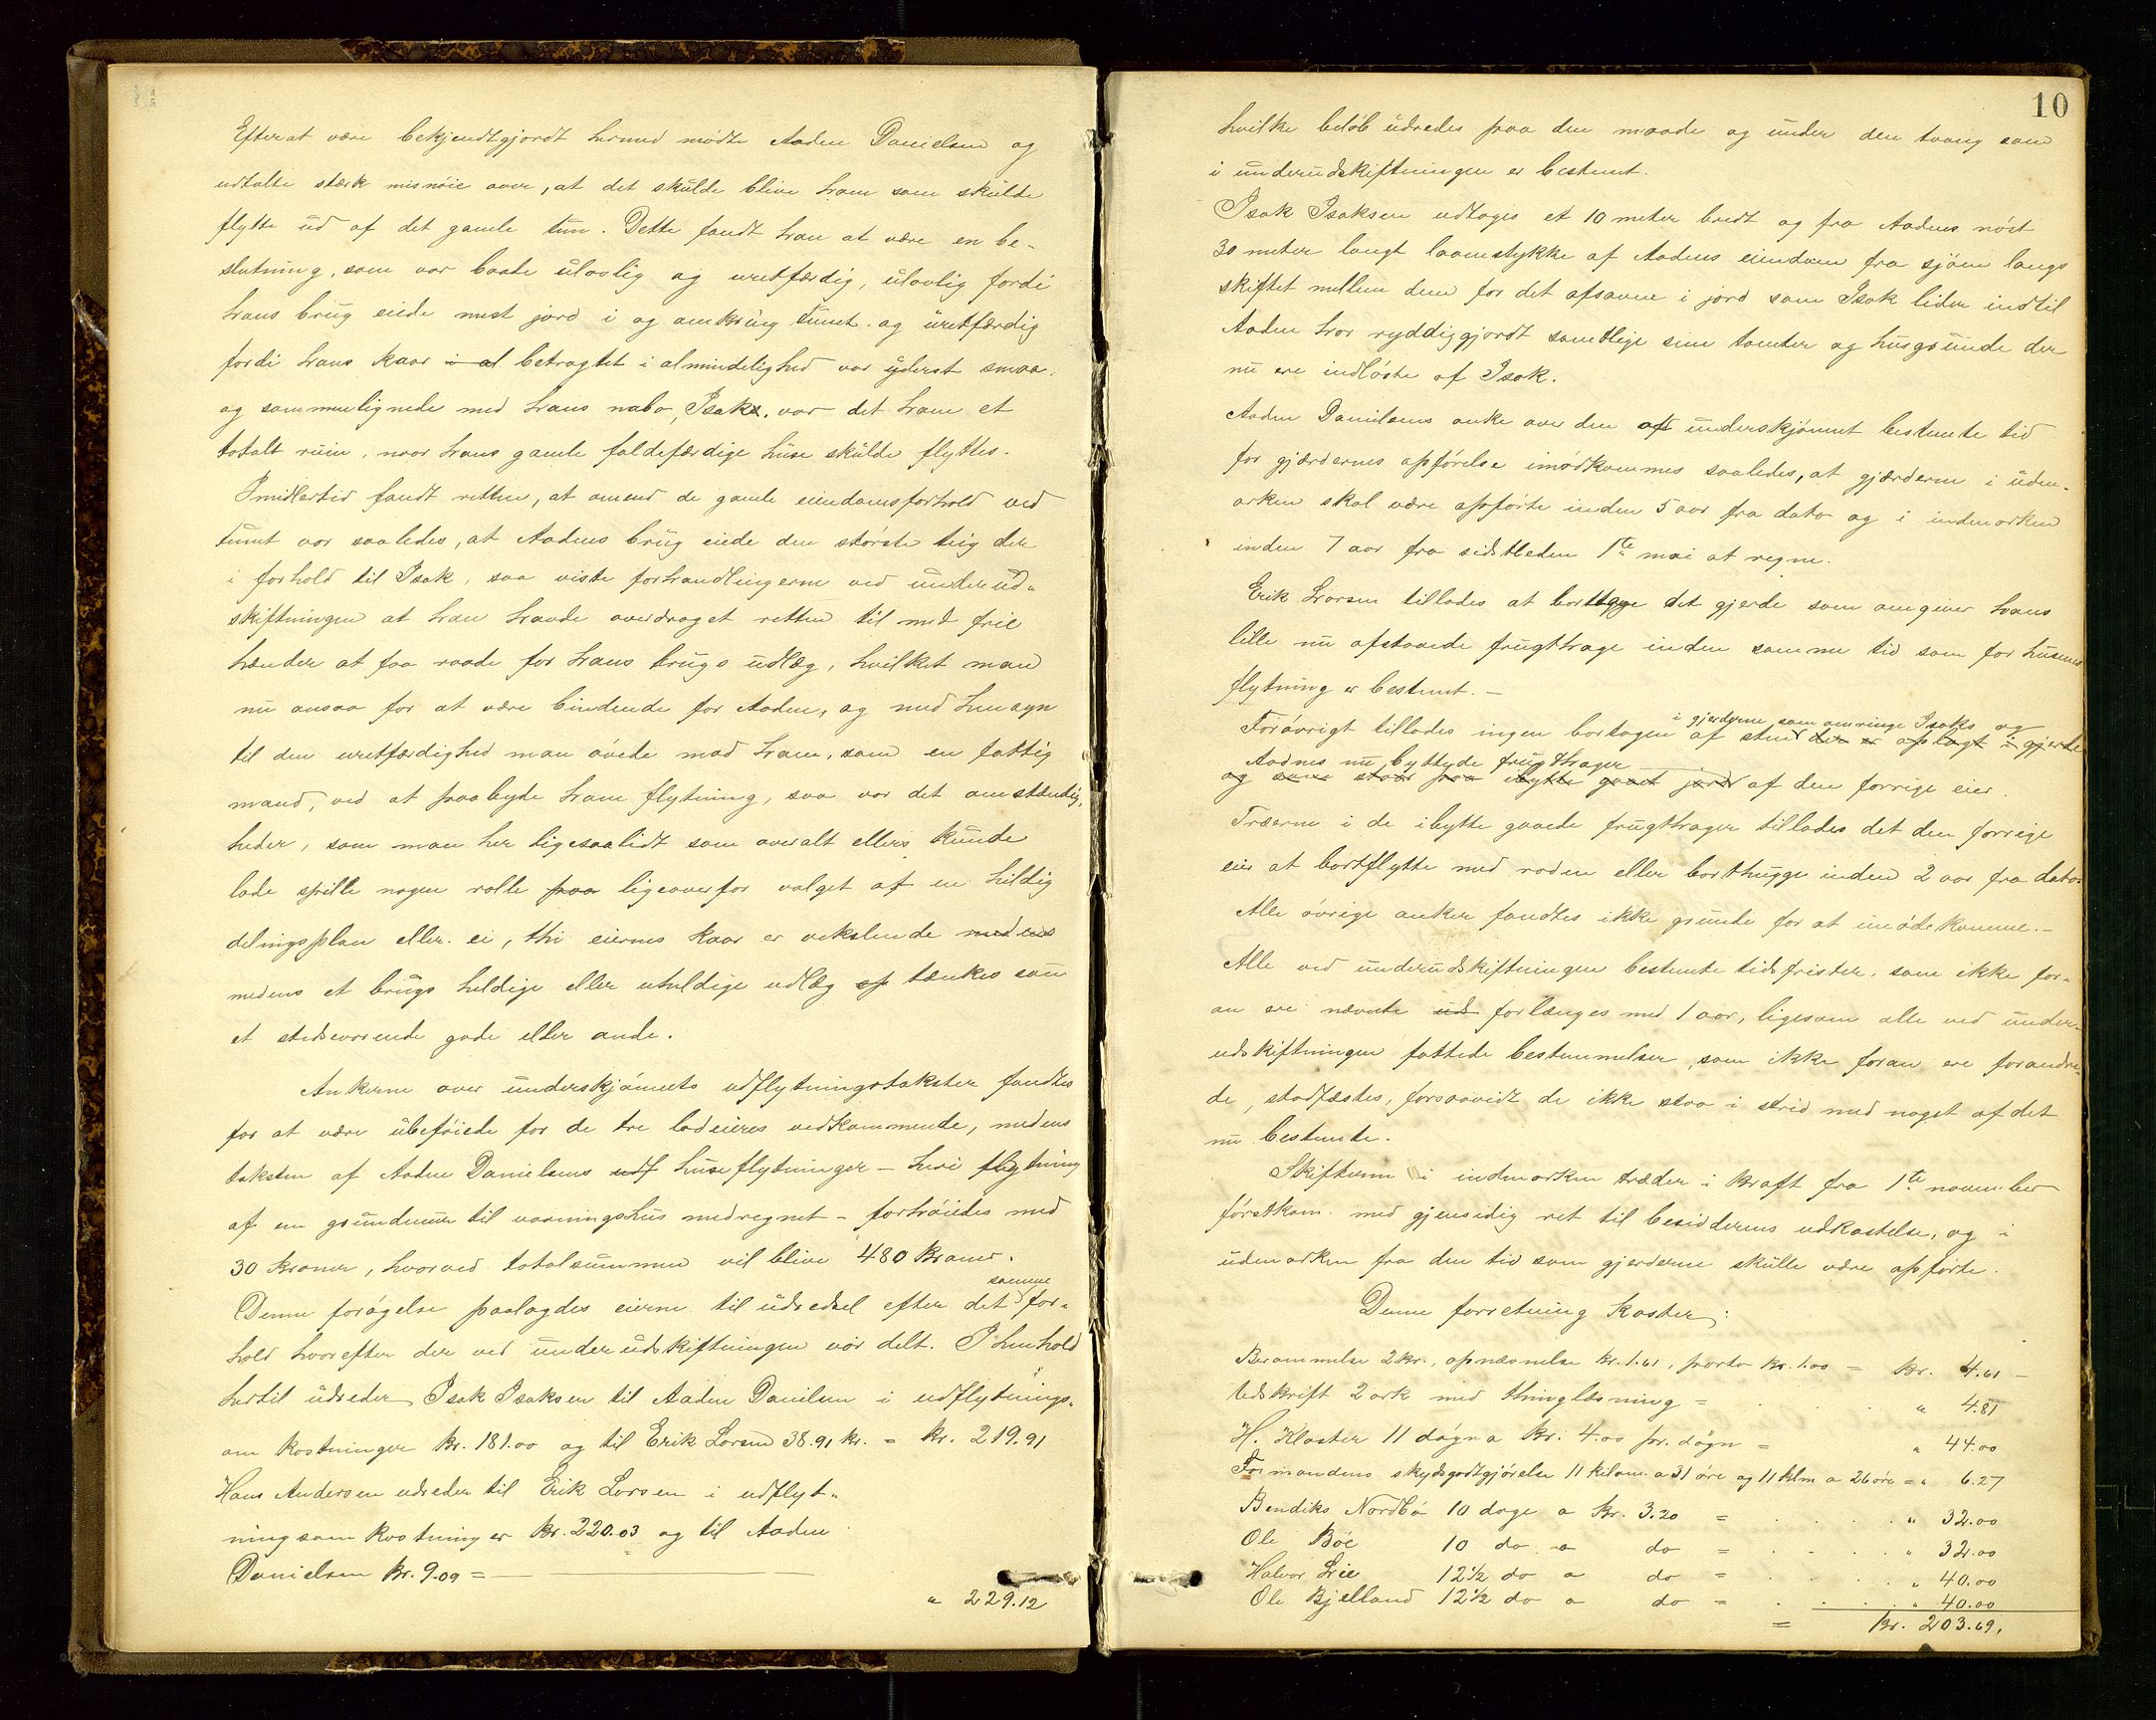 Efterat være bekjendtgjordt hermed mødte Aaden Danielsen og
udtalte stærk misnøie over, at det skulde blive ham som skulde
flytte ud af det gamle tun. Dette fandt han at være en be-
slutning, som var baade ulovlig og uretfærdig, ulovlig fordi
hans brug eiede mest jord i og omkring tunet og uretfærdig
fordi hans kaar i al betragtet i almindelighed var yderst smaa,
og sammenlignede med hans nabo, Isaks, var det ham et
totalt ruin, naar hans gamle faldefærdige huse skulde flyttes.
Imidlertid fandt retten, at omend de gamle eiendomsforhold ved
tunet var saaledes, at Aadens brug eiede den største teig der
i forhold til Isak, saa viste forhandlingerne ved underud-
skiftningen at han havde overdraget retten til med frie
hænder at faa raade for hans brugs udlæg, hvilket man
nu ansaa for at være bindende for Aaden, og med hensyn
til den uretfærdighed man øvede mod ham, som en fattig
mand, ved at paabyde ham flytning, saa var det omstændig-
heder, som man her ligesaalidt som overalt ellers kunde
lade spille nogen rolle paa ligeoverfor valget af en heldig
delingsplan eller ei, thi eiernes kaar er vekslende medens
medens et brugs heldige eller uheldige udlæg op tænkes som
et stedsevarende gode eller onde.
Ankerne over underskjønnets udflytningstakster fandtes
for at være ubeføiede for de tre lodeieres vedkommende, medens
taksten af Aaden Danielsens udf huse flytninger - heri flytning
af en grundmur til vaaningshus medregnet - forhøiedes med
30 kroner, hvorved totalsummen vil blive 480 kroner.
Denne forøgelse paalagdes eierne til udredsel efter det samme for-
hold hvorefter der ved underudskiftningen var delt. I henhold
hertil udreder Isak Isaksen til Aaden Danielsen i udflytnings-
omkostninger kr. 181.00 og til Erik Larsen 38.91 kr. = kr. 219.91
Hans Andersen udreder til Erik Larsen i udflyt-
ningsomkostninger kr. 220.03 og til Aaden
Danielsen kr. 9.09 =
" 229.12
10
hvilke beløb udredes paa den maade og under den tvang som
i underudskiftningen er bestemt.
Isak Isaksen udtoges et 10 meter bredt og fra Aadens nøst
30 meter langt laanstykke af Aadens eiendom fra sjøen langs
skiftet mellem dem for det afsavn i jord som Isak lider indtil
Aaden har ryddiggjordt samtlige sine tomter og husgrunde der
nu ere indløste af Isak.
Aaden Danielsens anke over den af underskjønnet bestemte tid
for gjærdernes opførelse imødkommes saaledes, at gjærderne i uden-
arken skal være opførte inden 5 aar fra dato og i indmarken
inden 7 aar fra sidstleden 1te mai at regne.
Erik Larsen tillades at borttage det gjerde som omgiver hans
lille nu afstaaede frugthage inden samme tid som for husenes
flytning er bestemt. -
i gjerderne som omringe Isaks og
Forøvrigt tillades ingen bortagen af sten der er oplagt i gjerde
Aadnes nu byttede frugthager
og som staar paa ibytte gaaet jord af den forrige eier.
Træerne i de ibytte gaaede frugthager tillades det den forrige
eier at bortflytte med roden eller borthugge inden 2 aar fra dato.
Alle øvrige anker fandtes ikke grunde for at imødekomme. -
Alle ved underudskiftningen bestemte tidsfrister, som ikke for-
an ere nævnte uds forlænges med 1 aar, ligesom alle ved under-
udskiftningen fattede bestemmelser, som ikke foran ere forandre-
de, stadfæstes, forsaavidt de ikke staa i strid med noget af det
nu bestemte.
Skifterne i indmarken træder i kraft fra 1te november
førstkom. med gjensidig ret til besidderens udkastelse, og i
udmarken fra den tid som gjerderne skulle være opførte.
Denne forretning koster:
Berammelse 2 kr., opnævnelse kr. 1.61, porto kr. 1.00 = kr. 4.61
Udskrift 2 ark med thinglæsning = " 4.81
H. Kloster 11 døgn a kr. 4.00 pr. døgn = " 44.00
Formandens skydsgodtgjørelse 11 kilom. a 31 øre og 11 klm a 26 øre = " 6.27
Bendiks Nordbø 10 dage a kr. 3.20 = " 32.00
Ole Bøe 10 do a do = " 32.00
Halvor Lie 12½ do a do = " 40.00
Ole Bjelland 12½ do a do = " 40.00
= kr. 203.69.